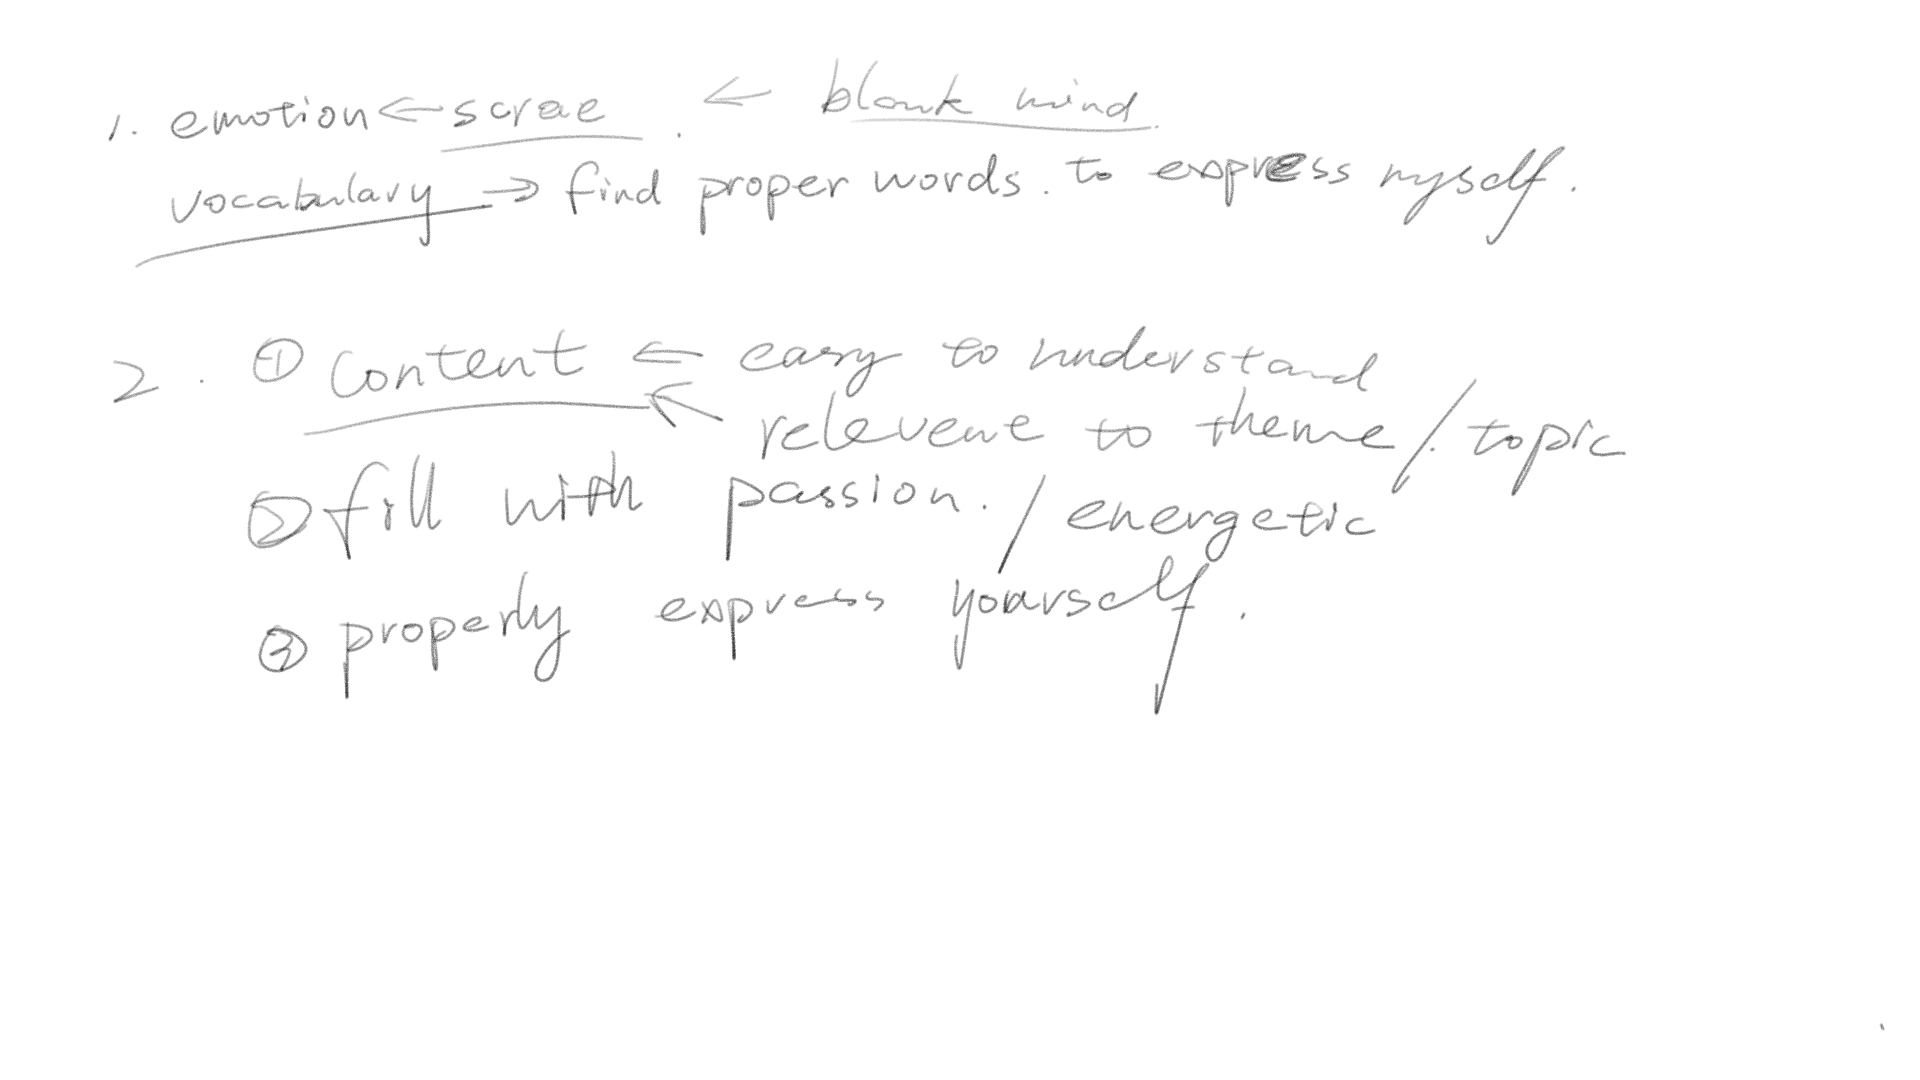 1. emotion ← scrae . ← blank mind.
vocabulary → find proper words. to express myself.
2. ① content ← easy to understand
↖ relevent to theme/. topic
② fill with passion. / energetic
③ properly express yourself.